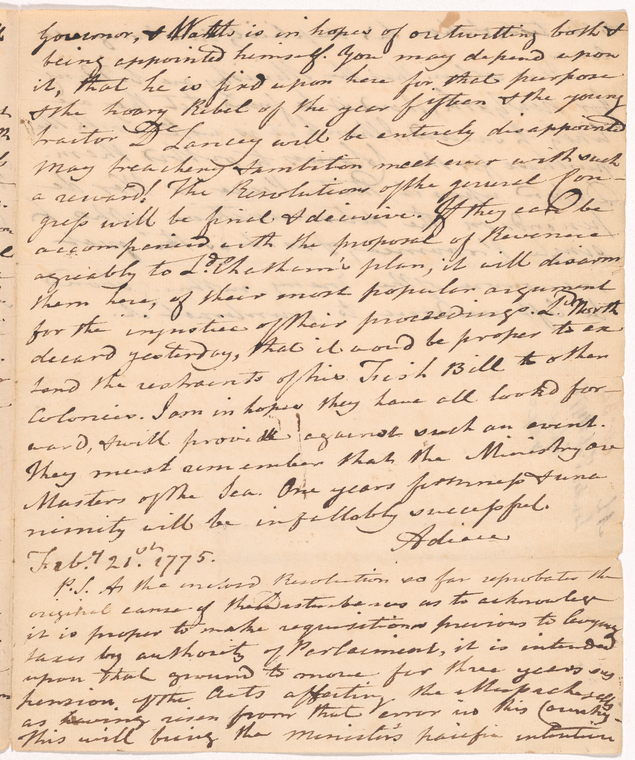 Governor, & Watts is in hopes of outwitting both &
being appointed himself. You may depend upon
it, that he is fixd upon here for that purpose
& the hoary Rebel of the year fifteen & the young
traitor De Lancey will be entirely disappointed
May treachery & ambition meet ever with such
a reward! The Resolutions of the general Con-
gress will be final & decisive. If they can be
accompanied with the proposal of Revenue
agreably to Ld. Chatham's plan, it will disarm
them here, of their most popular argument
for the injustice of their proceedings. Ld. North
declard yesterday, that it woud be proper to ex
tend the restraints of his Fish Bill to other
Colonies. I am in hopes they have all lookd for-
ward, & will provide against such an event.
They must remember that the Ministry are
Masters of the Sea. One years firmness & una
nimity will be infallably successful.
Adieu
Feby. 21.st 1775.
P.S. As the inclosd Resolution so far reprobates the
original cause of the Disturbances as to acknowlege
it is proper to make requisitions previous to levying
taxes by authority of Parliament, it is intended
upon that ground to move for three years sus
pension of the Acts affecting the Massachusetts
as having risen from that error in this Country-
This will bring the minister's pacific intention